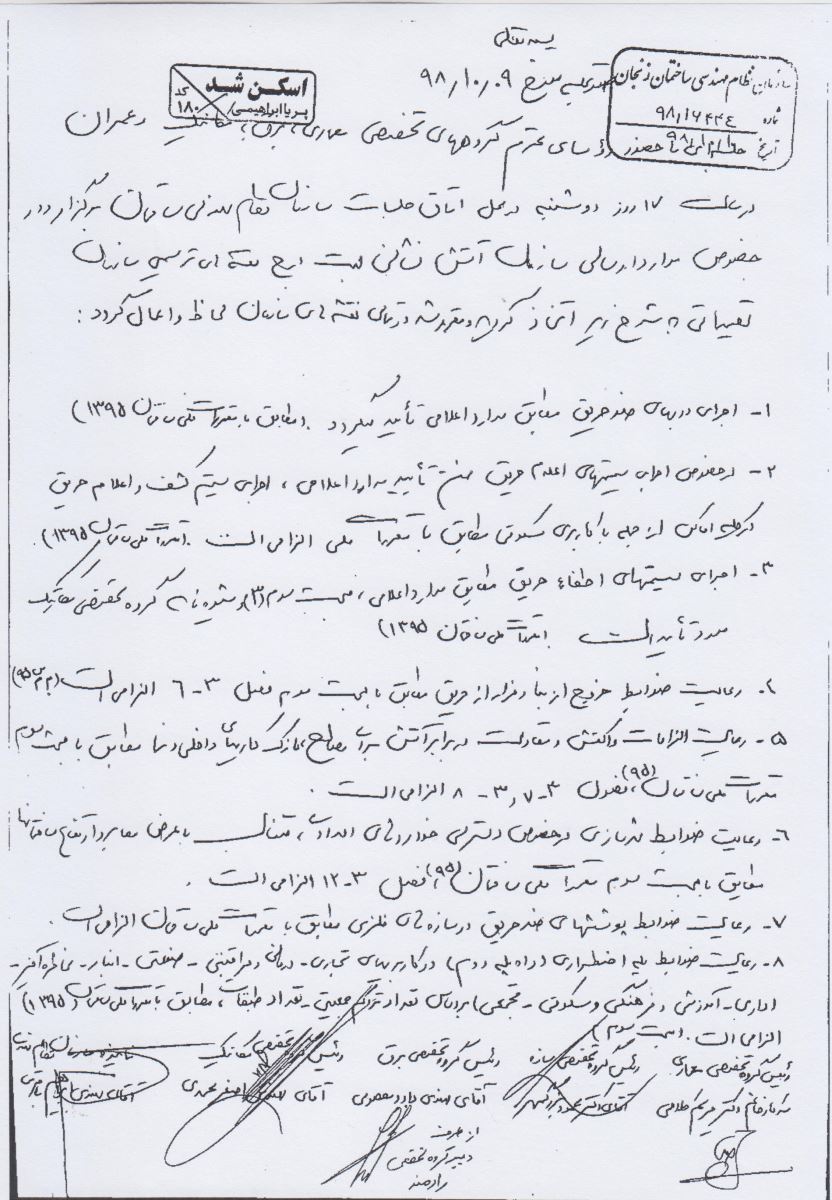 بسمه تعالی
سازمان نظام مهندسی ساختمان زنجان
شماره ۹۸/۱۶۴۴۴
تاریخ
اسکن شد
پریا ابراهیمی/ کد ۱۸۰
صورتجلسه مورخ ۹۸/۱۰/۰۹
جلسه‌ای با حضور رؤسای محترم گروههای تخصصی معماری، برق، مکانیک و عمران
در ساعت ۱۷ روز دوشنبه در محل اتاق جلسات سازمان نظام مهندسی ساختمان برگزار و در
خصوص موارد ارسالی سازمان آتش نشانی جهت درج نقشه های ترسیمی سازمان
تصمیماتی به شرح زیر اتخاذ گردید و مقرر شد در تمامی نقشه های سازمان لحاظ و اعمال گردد:
۱- اجرای دربهای ضد حریق مطابق موارد اعلامی تأیید میگردد. (مطابق با مقررات ملی ساختمان ۱۳۹۵)
۲- در خصوص اجرای سیستمهای اعلام حریق ضمن تأیید موارد اعلامی، اجرای سیستم کشف و اعلام حریق
در کلیه اماکن از جمله با کاربری مسکونی مطابق با مقررات ملی الزامی است. (مقررات ملی ساختمان ۱۳۹۵)
۳- اجرای سیستمهای اطفاء حریق مطابق موارد اعلامی، مبحث سوم (۳) و شیوه نامه گروه تخصصی مکانیک
مورد تأیید است. (مقررات ملی ساختمان ۱۳۹۵)
۴- رعایت ضوابط خروج از بنا و فرار از حریق مطابق با مبحث سوم فصل ۳-۶ الزامی است
۵- رعایت الزامات واکنش و مقاومت در برابر آتش برای مصالح، نازک کاریهای داخلی و نما مطابق با مبحث سوم
مقررات ملی ساختمان (۹۵)، فصول ۳-۷ و ۳-۸ الزامی است.
۶- رعایت ضوابط شهرسازی در خصوص دسترسی خودروهای امدادی، متناسب با عرض معابر و ارتفاع ساختمانها
مطابق با مبحث سوم مقررات ملی ساختمان (۹۵)، فصل ۳-۱۲ الزامی است.
۷- رعایت ضوابط پوششهای ضد حریق در سازه های فلزی مطابق با مقررات ملی ساختمان الزامی است.
۸- رعایت ضوابط پله اضطراری (راه پله دوم) در کاربریهای تجاری - درمانی و مراقبتی - صنعتی - انبار - مخاطره آمیز -
اداری - آموزشی و فرهنگی و مسکونی - تجمعی) بر مبنای تعداد تراکم جمعیتی - تعداد طبقات، مطابق با مقررات ملی ساختمان (۱۳۹۵)
الزامی است. (مبحث سوم)
رئیس گروه تخصصی معماری رئیس گروه تخصصی سازه رئیس گروه تخصصی برق رئیس گروه تخصصی مکانیک نماینده سازمان نظام مهندسی
سرکار خانم دکتر مریم غلامی آقای دکتر آقای مهندس داود معصومی آقای مهندس اصغر محمدی آقای مهندس
از طرف
دبیر گروه تخصصی